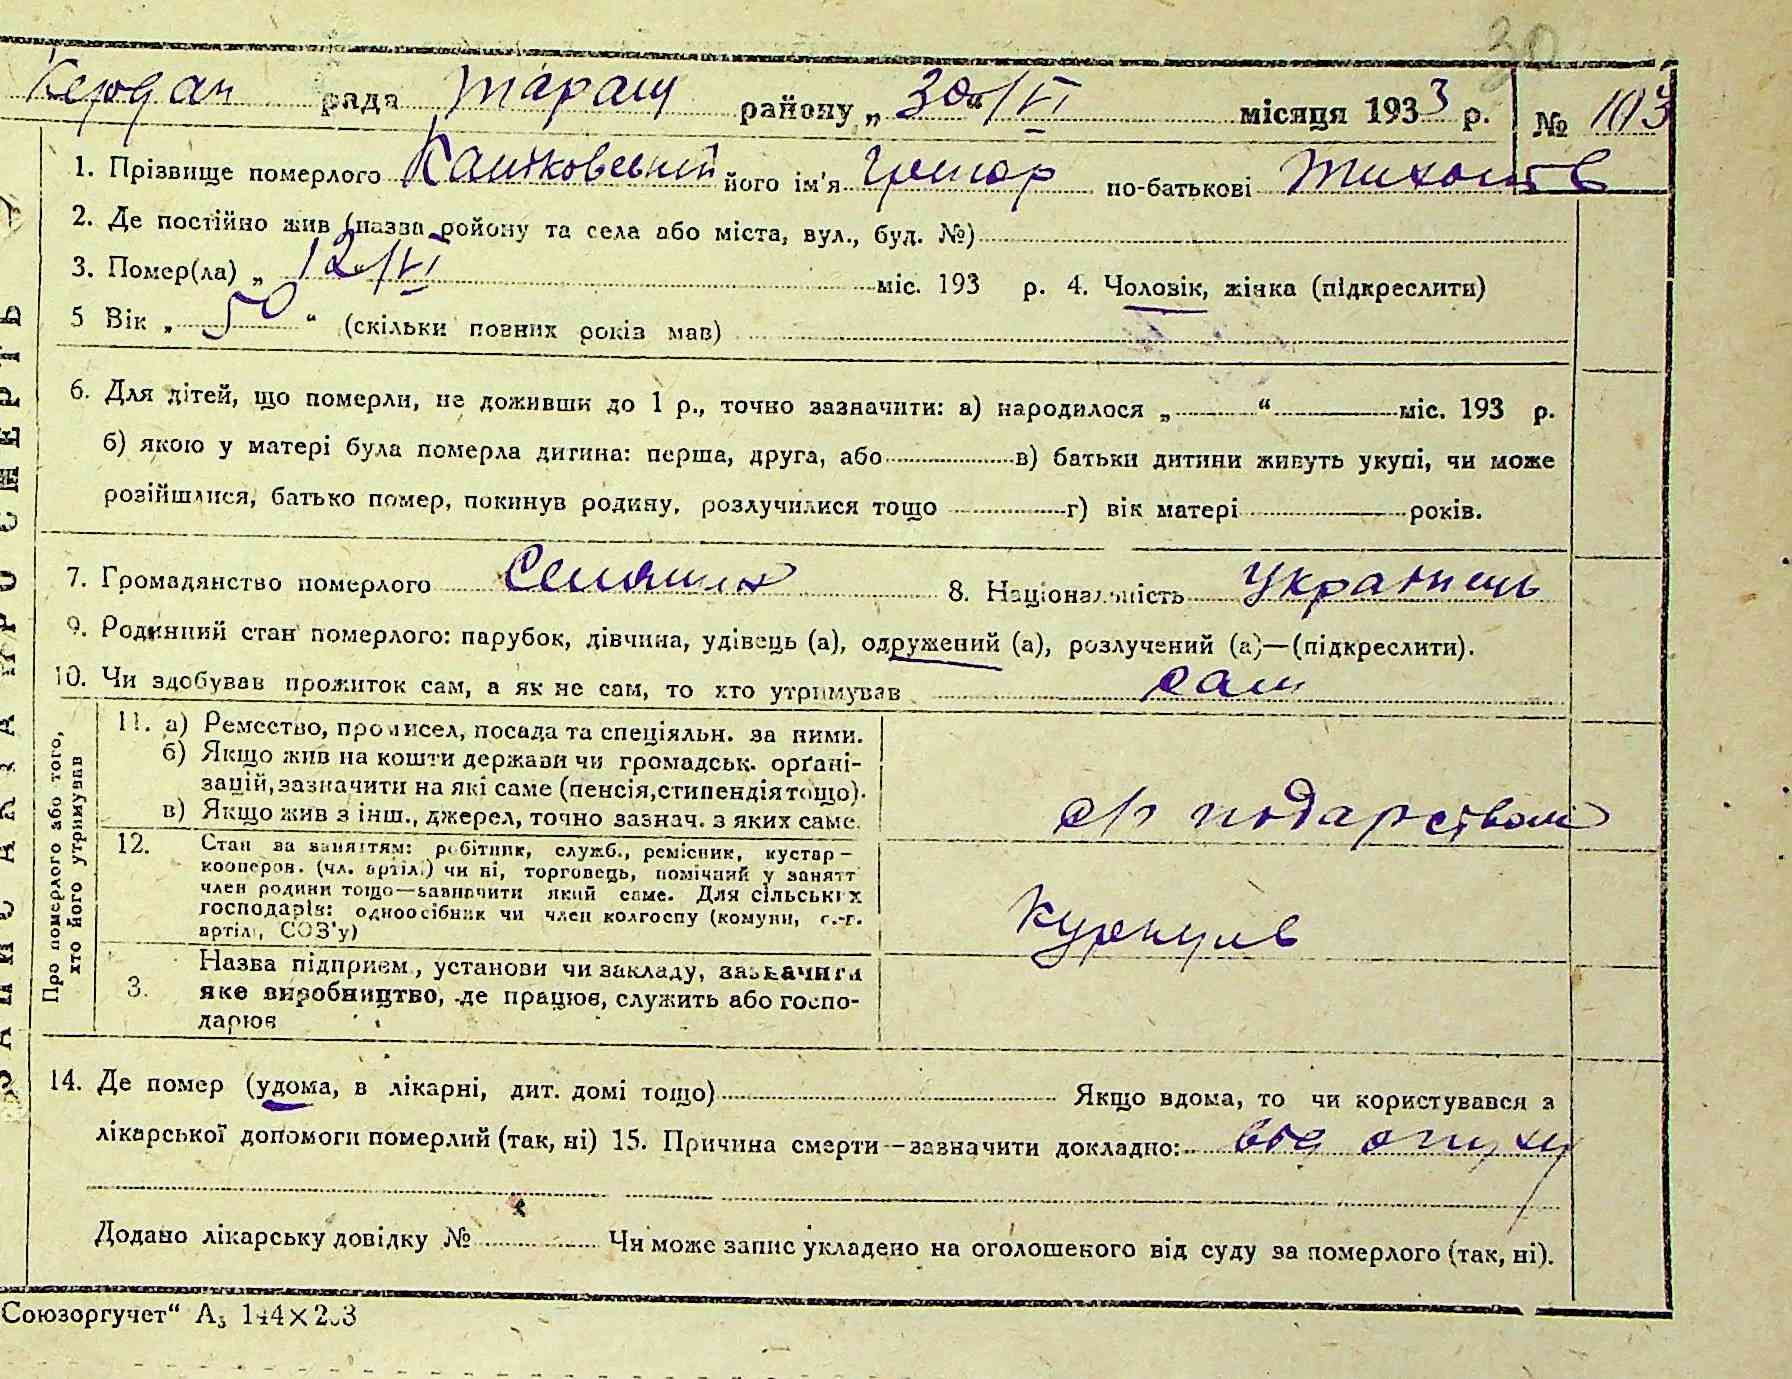 30
Кердан рада Таращ району „ 30/VI “ місяця 1933 р. № 103
1. Прізвище померлого його ім'я Григор по-батькові Тихонів
2. Де постійно жив (назва ройону та села або міста, вул., буд. №)
3. Помер(ла) „ 12/VI міс. 193 р. 4. Чоловік, жінка (підкреслити)
5 Вік „ 50 “ (скільки повних років мав)
6. Для дітей, що померли, не доживши до 1 р., точно зазначити: а) народилося „ “ міс. 193 р.
б) якою у матері була померла дитина: перша, друга, або в) батьки дитини живуть укупі, чи може
розійшлися, батько помер, покинув родину, розлучилися тощо г) вік матері років.
7. Громадянство померлого Селянин 8. Національність Українець
9. Родинний стан померлого: парубок, дівчина, удівець (а), одружений (а), розлучений (а)—(підкреслити).
10. Чи здобував прожиток сам, а як не сам, то хто утримував сам
Про померлого або того,
хто його утримував
11. а) Ремество, промисел, посада та спеціяльн. за ними.
б) Якщо жив на кошти держави чи громадськ. орґані-
зацій, зазначити на які саме (пенсія, стипендія тощо).
в) Якщо жив з інш., джерел, точно зазнач. з яких саме.
с/г подарством
12. Стан за заняттям: робітник, служб., ремісник, кустар—
кооперов. (чл. артіл.) чи ні, торговець, помічний у занятт
член родини тощо—зазначити який саме. Для сільських
господарів: одноосібник чи член колгоспу (комуни, с.-г.
артілі, СОЗ'у)
Куркуль
3. Назва підприєм., установи чи закладу, зазначити
яке виробництво, де працює, служить або госпо-
дарює
14. Де помер (удома, в лікарні, дит. домі тощо) Якщо вдома, то чи користувався з
лікарської допомоги померлий (так, ні) 15. Причина смерти—зазначити докладно: від опуху
Додано лікарську довідку № Чи може запис укладено на оголошеного від суду за померлого (так, ні).
Союзоргучет“ А₅ 144×203